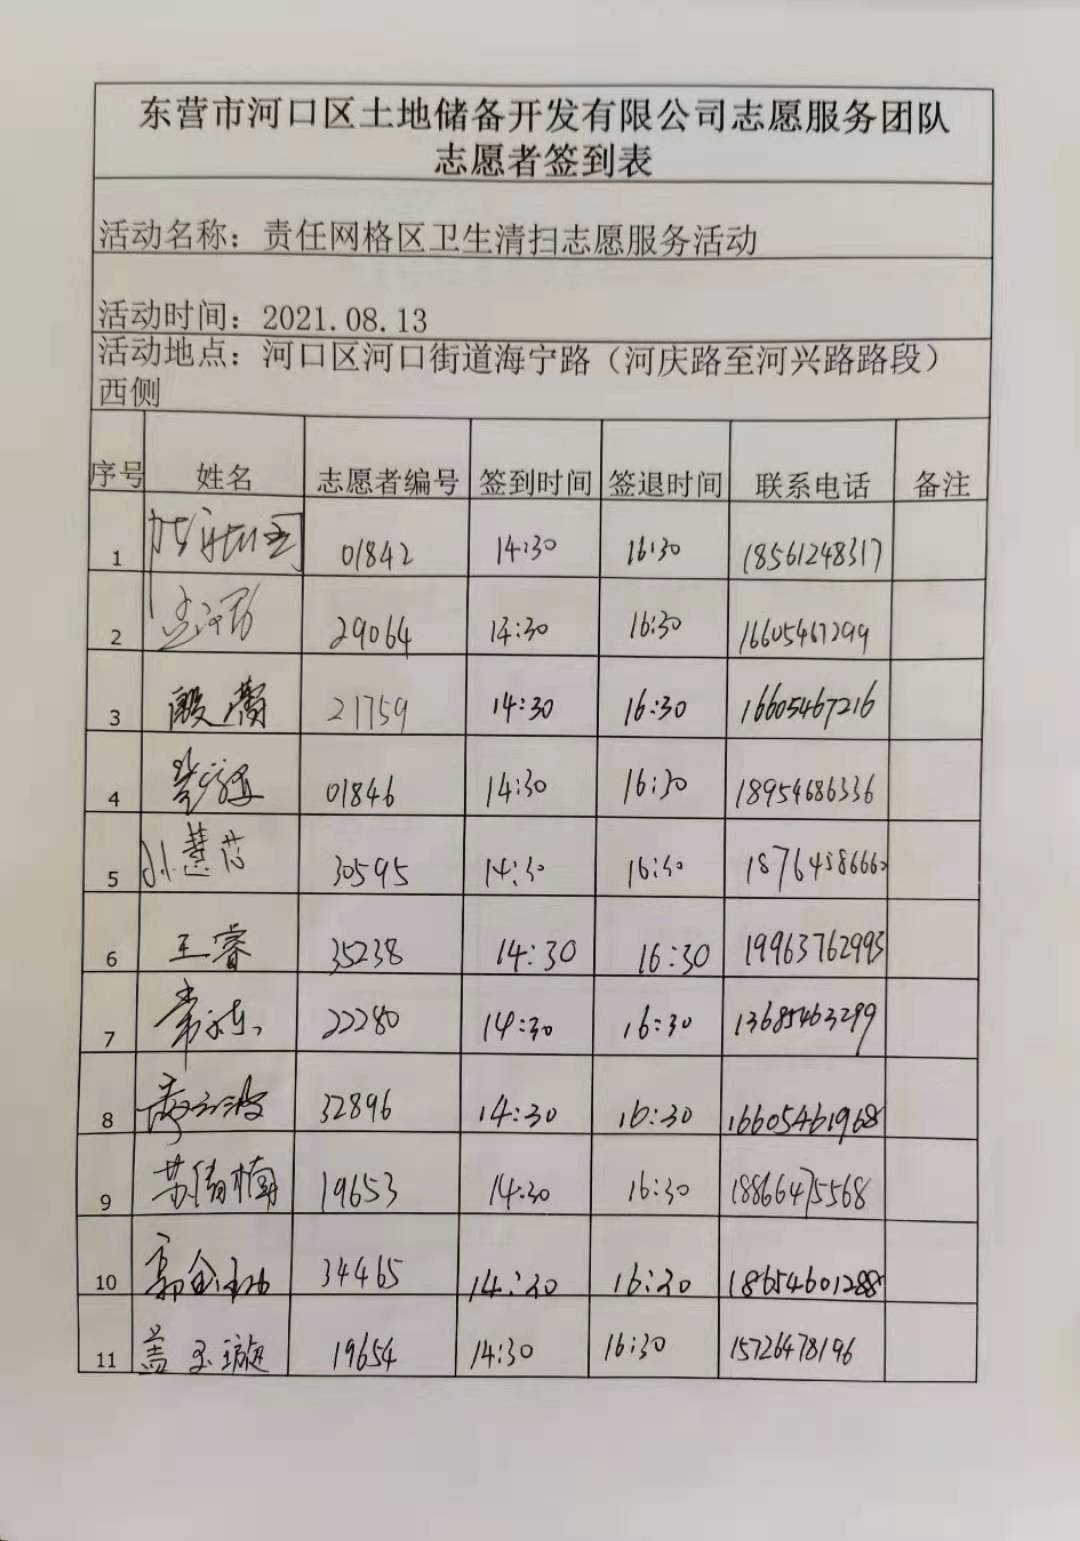 东营市河口区土地储备开发有限公司志愿服务团队
志愿者签到表
活动名称：责任网格区卫生清扫志愿服务活动
活动时间：2021.08.13
活动地点：河口区河口街道海宁路（河庆路至河兴路路段）
西侧
序号 姓名 志愿者编号 签到时间 签退时间 联系电话 备注
1 01842 14:30 16:30 18561248317
2 29064 14:30 16:30 16605467299
3 殷蕾 21759 14:30 16:30 16605467216
4 01846 14:30 16:30 18954686336
5 孙慧芳 30595 14:30 16:30 18764586660
6 王睿 35238 14:30 16:30 19963762993
7 22280 14:30 16:30 13685463299
8 32896 14:30 16:30 16605461968
9 苏倩楠 19653 14:30 16:30 18866475568
10 34465 14:30 16:30 18654601288
11 盖玉璇 19654 14:30 16:30 15726478196